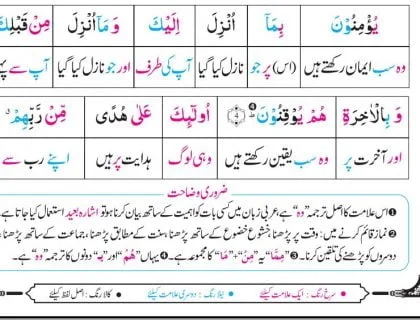 يُؤْمِنُوْنَ بِمَاۤ اُنْزِلَ اِلَيْكَ وَ مَاۤ اُنْزِلَ مِنْ قَبْلِكَ
وہ سب ایمان رکھتے ہیں (اس) پر جو نازل کیا گیا آپ کی طرف اور جو نازل کیا گیا آپ سے پہلے
وَ بِالْاٰخِرَةِ هُمْ يُوْقِنُوْنَ ؕ۴ اُولٰٓئِكَ عَلٰى هُدًى مِّنْ رَّبِّهِمْ ۙ
اور آخرت پر وہ سب یقین رکھتے ہیں وہی لوگ ہدایت پر ہیں اپنے رب سے
ضروری وضاحت
❶ اس علامت کا اصل ترجمہ ”وہ“ ہے، عربی زبان میں کسی بات کو اہمیت کے ساتھ بیان کرنا ہو تو اشارہ بعید استعمال کیا جاتا ہے۔
❷ نماز قائم کرنے میں: وقت پر پڑھنا، خشوع خضوع کے ساتھ پڑھنا، سنت کے مطابق پڑھنا، جماعت کے ساتھ پڑھنا،
دوسروں کو پڑھنے کی تلقین کرنا۔ ❸ ”مِمَّا“ یہ ”مِنْ“ + ”مَا“ کا مجموعہ ہے۔ ❹ یہاں ”هُمْ“ اور ”یـ“ دونوں کا ترجمہ ”وہ“ ہے۔
• سرخ رنگ: ایک علامت کیلئے • نیلا رنگ: دوسری علامت کیلئے • کالا رنگ: اصل لفظ کیلئے